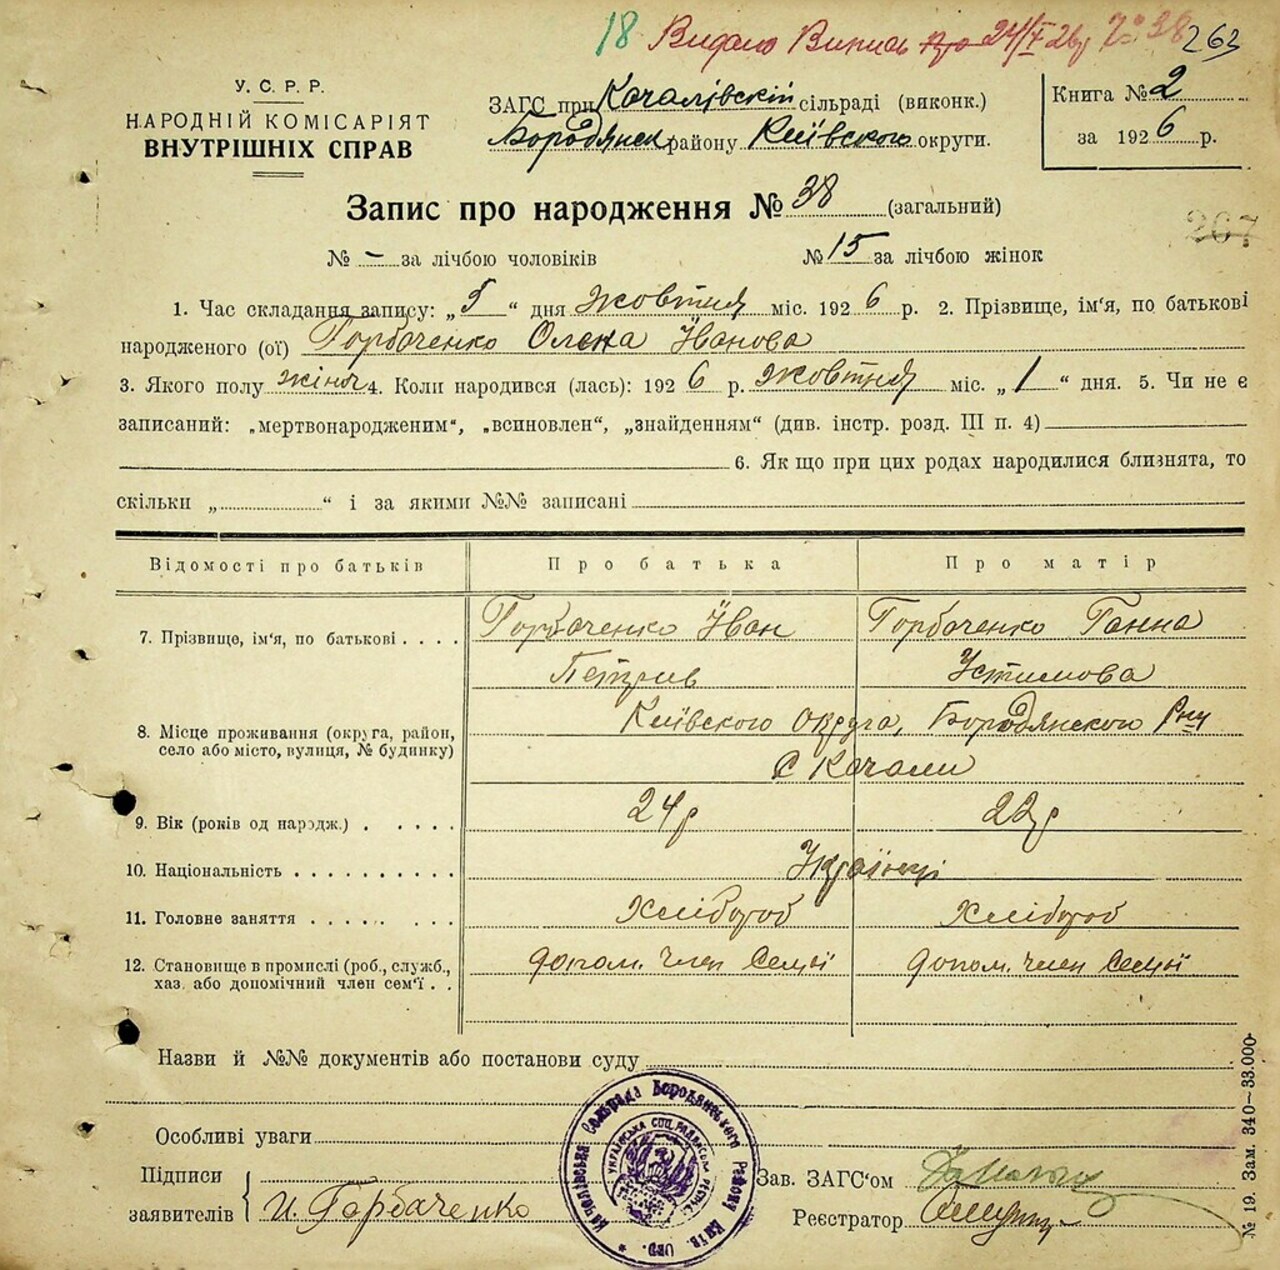 18 Видано Випись 24/X 26 № 38 263
У. С. Р. Р.
НАРОДНІЙ КОМІСАРІЯТ
ВНУТРІШНІХ СПРАВ
ЗАГС при Качалівскій сільраді (виконк.)
Бородянск району Київского округи.
Книга № 2
за 1926 р.
Запис про народження № 38 (загальний)
267
№ - за лічбою чоловіків № 15 за лічбою жінок
1. Час складання запису: „5“ дня жовтня міс. 1926 р. 2. Прізвище, ім‘я, по батькові
народженого (ої) Горбаченко Олена Іванова
3. Якого полу жіноч 4. Коли народився (лась): 1926 р. жовтня міс. „1“ дня. 5. Чи не є
записаний: „мертвонародженим“, „всиновлен“, „знайденням“ (див. інстр. розд. III п. 4)
6. Як що при цих родах народилися близнята, то
скільки „ “ і за якими №№ записані
Відомості про батьків Про батька Про матір
7. Прізвище, ім‘я, по батькові Горбаченко Іван Горбаченко Ганна
Петрив Устимова
8. Місце проживання (округа, район, село або місто, вулиця, № будинку) Київского округа, Бородянского Рну
С Качали
9. Вік (років од народж.) 24 р 22 р
10. Національність Українці
11. Головне заняття Хлібороб Хлібороб
12. Становище в промислі (роб., служб., допом. член семьї допом. член семьї
хаз. або допомічний член сем‘ї
Назви й №№ документів або постанови суду
Особливі уваги
Підписи
заявителів И. Горбаченко
Качалівська Сільрада Бородянського Району Київ. Окр.
УКРАЇНСЬКА СОЦ. РАДЯНСЬК. РЕСПУБ.
Зав. ЗАГС‘ом
Реєстратор
№ 19. Зам. 340—33.000